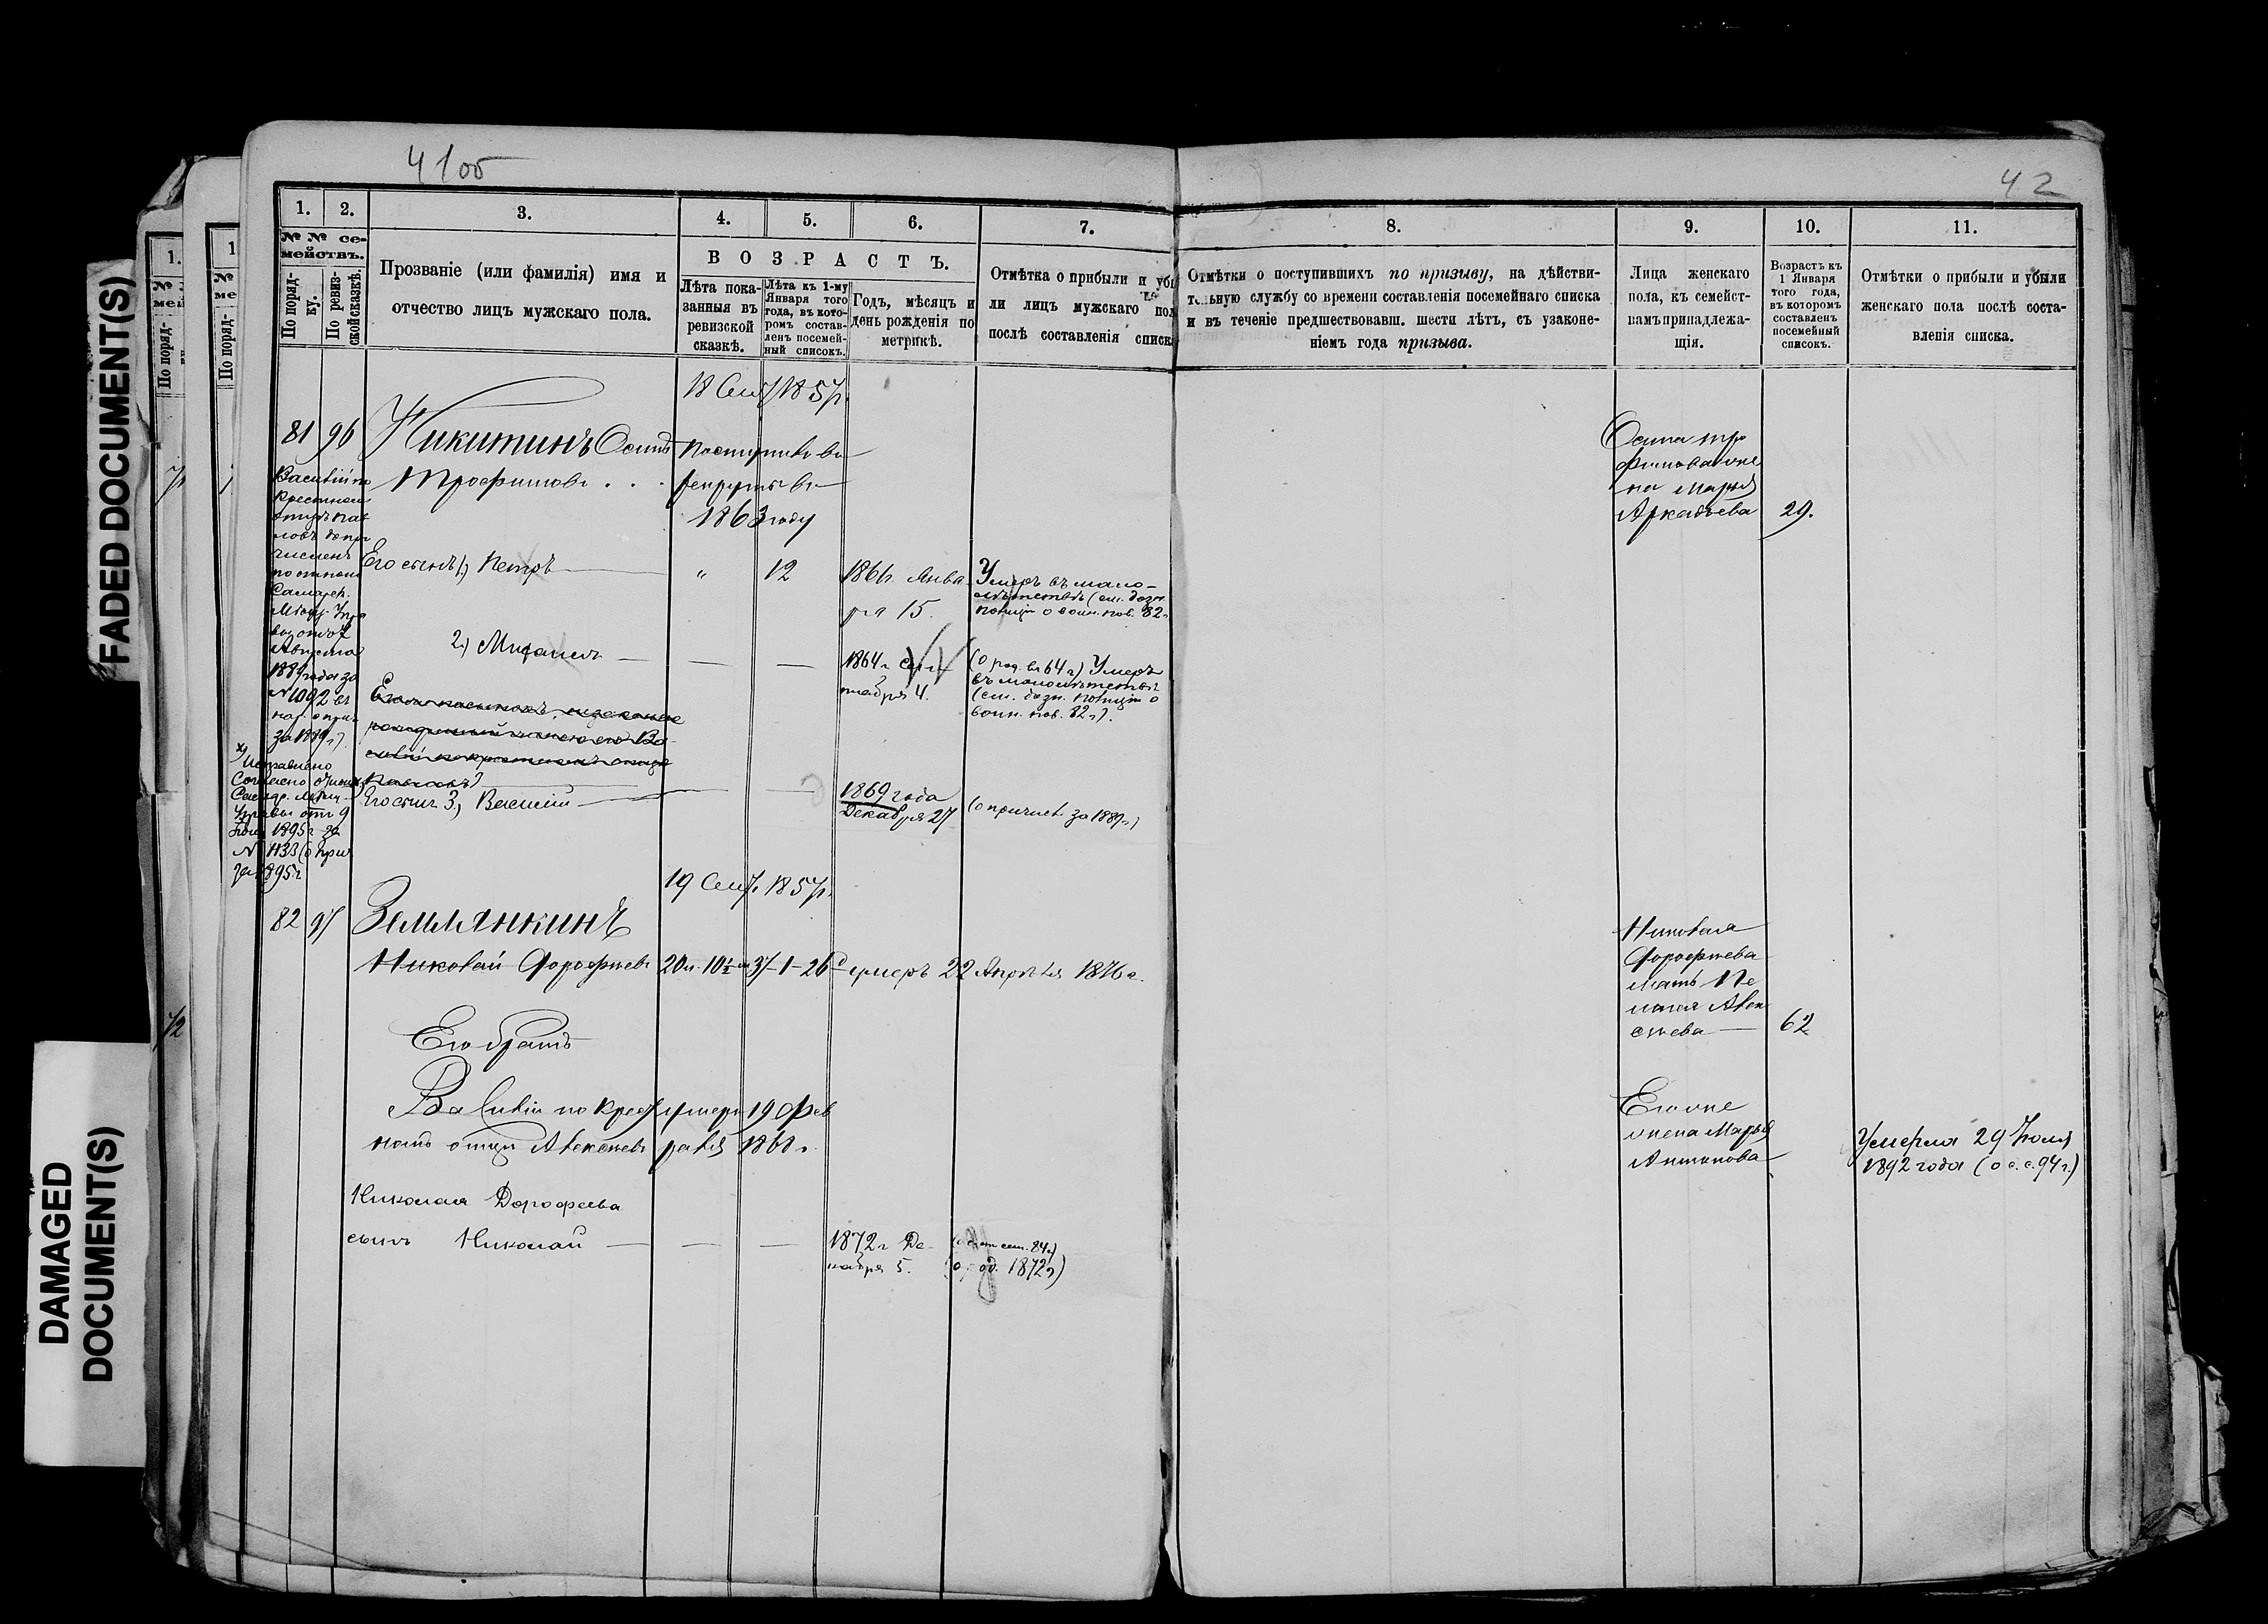 FADED DOCUMENT(S)
DAMAGED
DOCUMENT(S)
41об
42
1.
2.
3.
4.
5.
6.
7.
8.
9.
10.
11.
№ № се-
мействъ.
По поряд-
ку.
По ревиз-
ской сказкѣ.
Прозваніе (или фамилія) имя и
отчество лицъ мужскаго пола.
ВОЗРАСТЪ.
Лѣта пока-
занныя въ
ревизской
сказкѣ.
Лѣта къ 1-му
Января того
года, въ кото-
ромъ состав-
ленъ посемей-
ный списокъ.
Годъ, мѣсяцъ и
день рожденія по
метрикѣ.
Отмѣтка о прибыли и убы
ли лицъ мужскаго пол
послѣ составленія списк
Отмѣтки о поступившихъ по призыву, на дѣйстви-
тельную службу со времени составленія посемейнаго списка
и въ теченіе предшествовавш. шести лѣтъ, съ узаконе-
ніемъ года призыва.
Лица женскаго
пола, къ семейст-
вамъ принадлежа-
щія.
Возрастъ къ
1 Января
того года,
въ которомъ
составленъ
посемейный
списокъ.
Отмѣтки о прибыли и убыли
женскаго пола послѣ соста-
вленія списка.
18 Сент. 1857г.
81 96 Никитинъ Осипъ
Трофимовъ . . .
поступилъ въ
рекруты въ
1863 году
Осипа Тро
фимова же
на Марья
Аркадьева 29.
Василій по
крестном
отцѣ Пав
ловъ допри
численъ
Самарск.
Августа
1889 года за
№ 1092
за 1889 г.)
Его сынъ 1) Петръ " 12 1861г. Янва
ря 15.
Умеръ въ мало-
лѣтствѣ (см. дозн.
полиціи о воин. пов. 82г
2) Михаилъ 1864г. Сен
тября 4.
(о род. въ 64г) Умеръ
въ малолѣтствѣ
(см. дозн. полиціи о
воин. пов. 82г).
Исправлено
Управы отъ 9
1895г за
№ 1133
за 1895г
Его сынъ 3) Василій 1869 года
Декабря 27
(о причисл. за 1889г)
19 Сент. 1857г.
82 97 Землянкинъ
Николай Дорофеевъ 20л. 10½ м 37-1-26 умеръ 22 Апрѣля 1876г.
Николая
Дорофеева
мать Пе
лагея Алек
сѣева 62
Его братъ
Василій по крест
номъ отцѣ Алексѣевъ
умеръ 19 Фев
раля 1861г.
Его же
жена Марья
Антонова
Умерла 29 Іюля
1892 года (о с. с. 94г.)
Николая Дорофеева
сынъ Николай 1872г. Де
кабря 5.
(о род. 1872г)